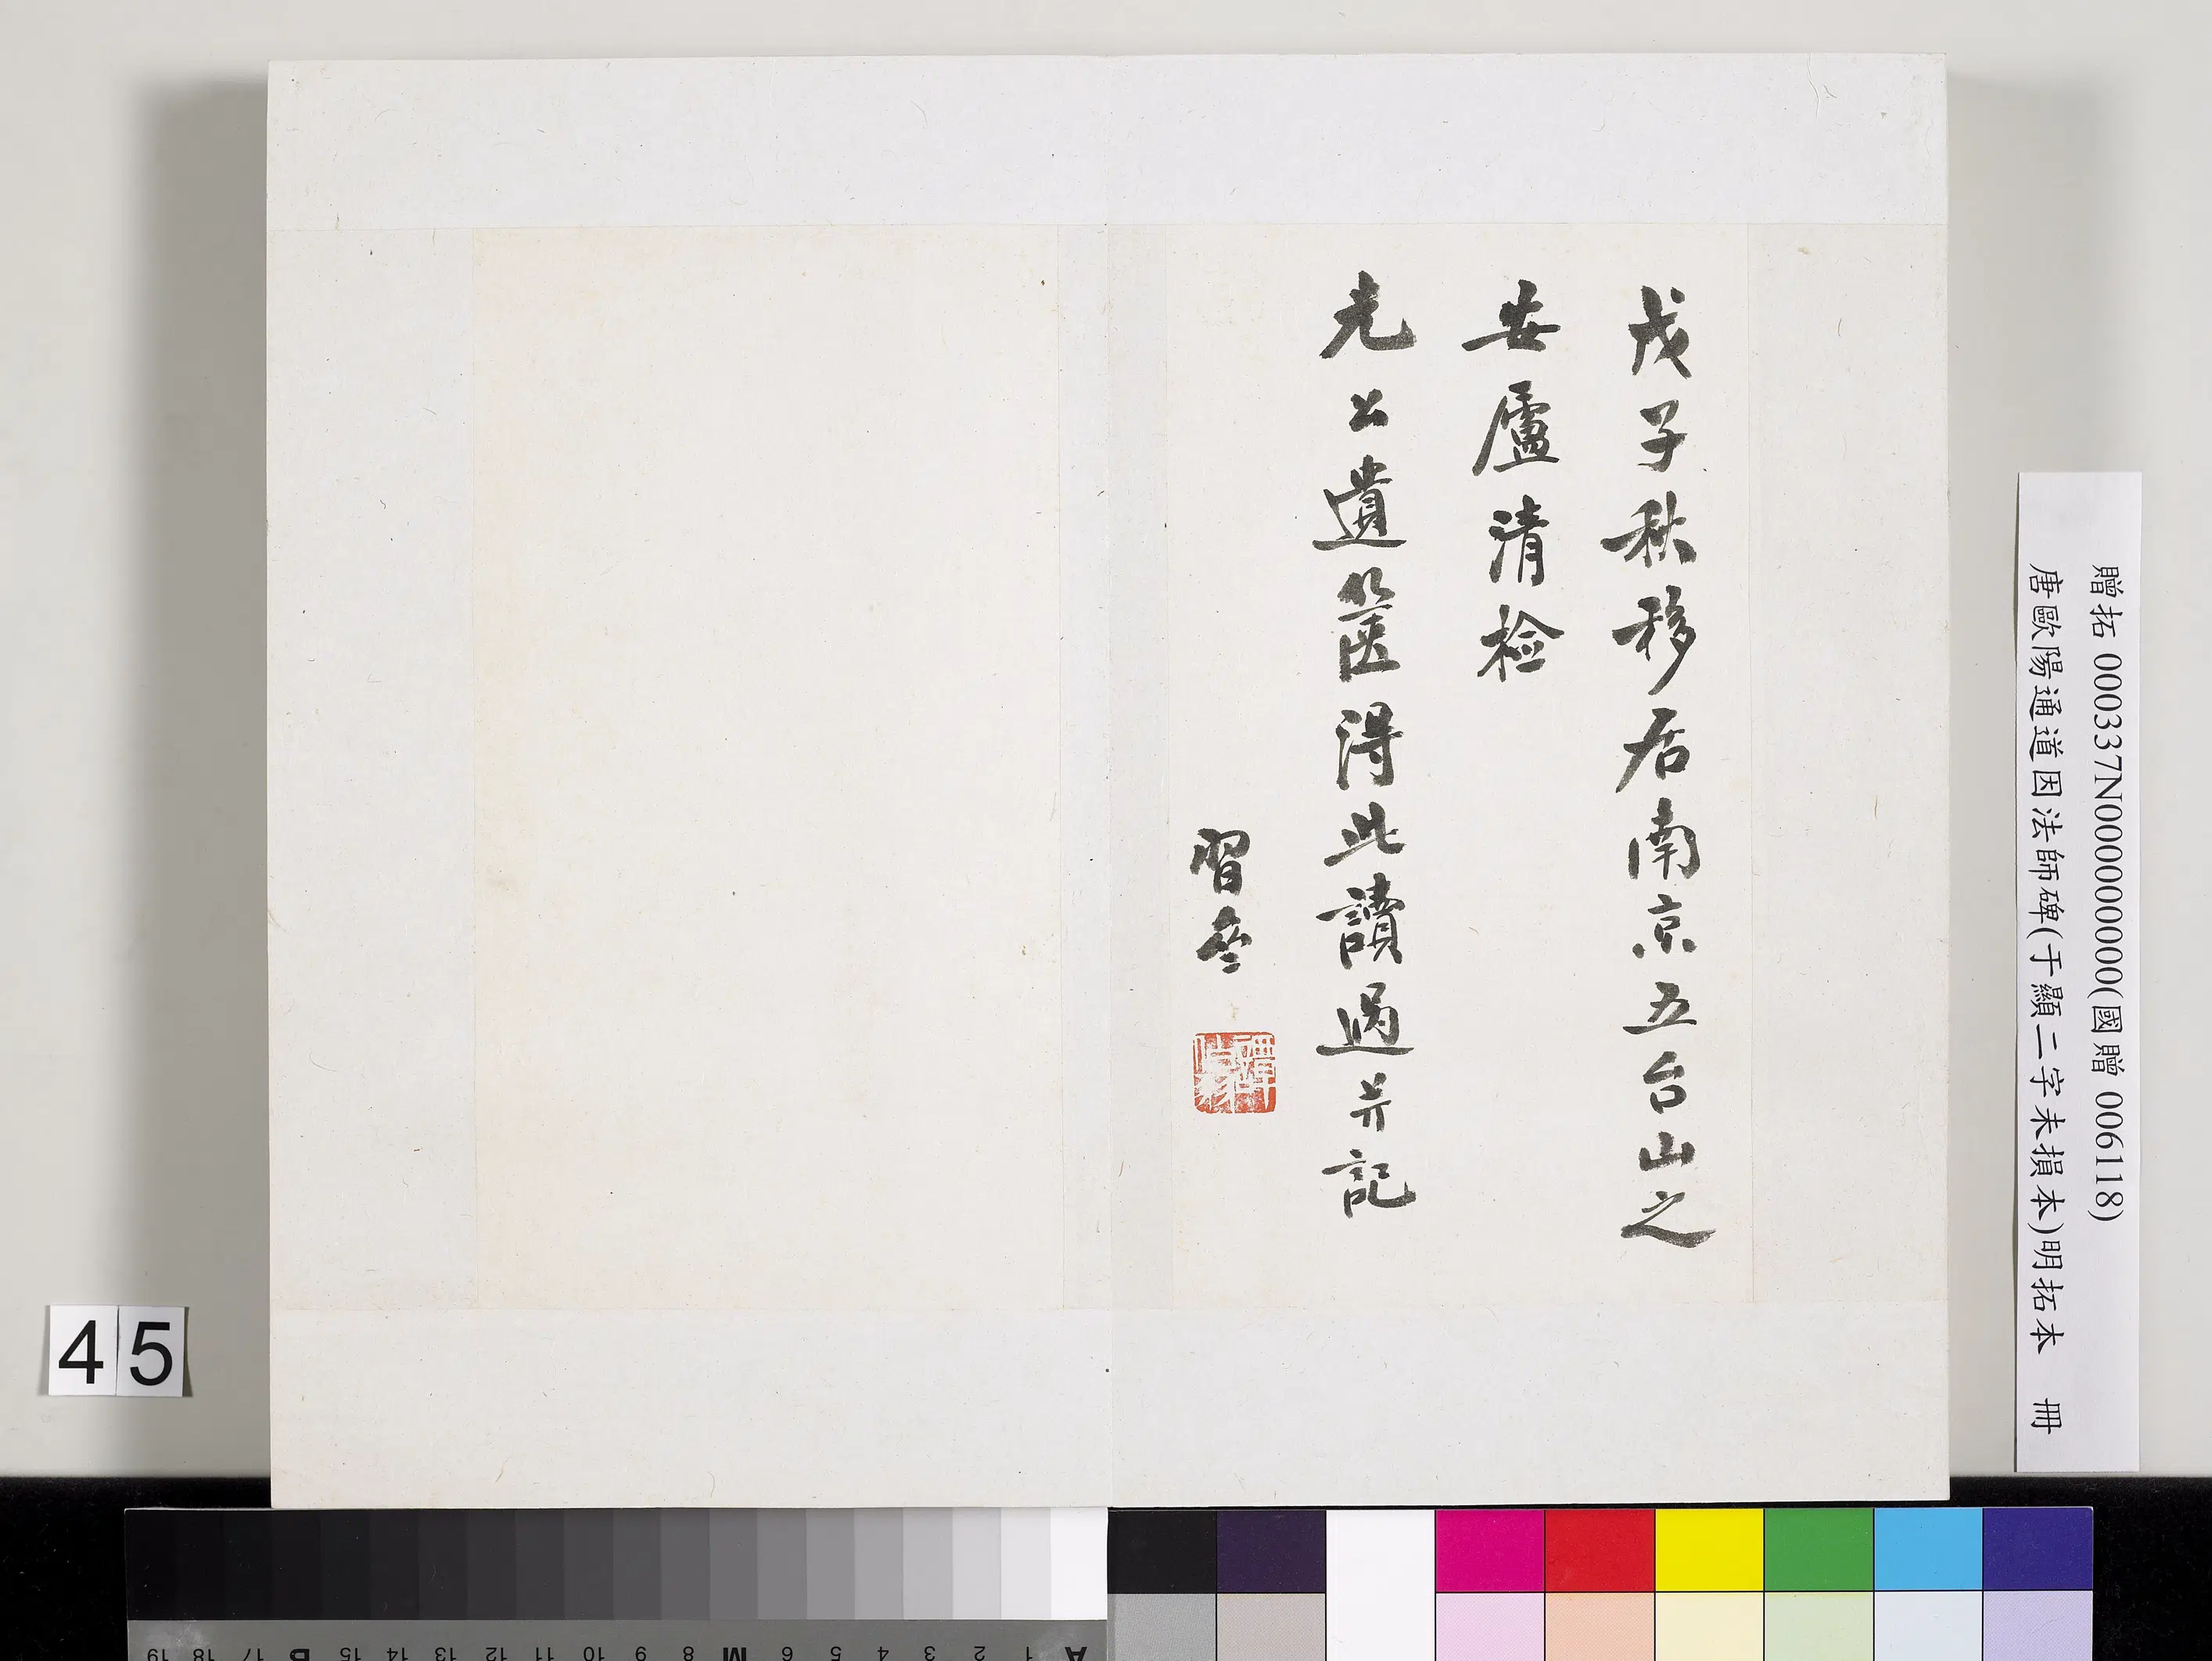 戊子秋移居南京五台山之
安廬清检
先公遺篋得此讀過并記
習亝
贈拓 000337N000000000(國贈 006118)
唐歐陽通道因法師碑(于顯二字未損本)明拓本 冊
45
A 1 2 3 4 5 6 M 8 9 10 11 12 13 14 15 B 17 18 19